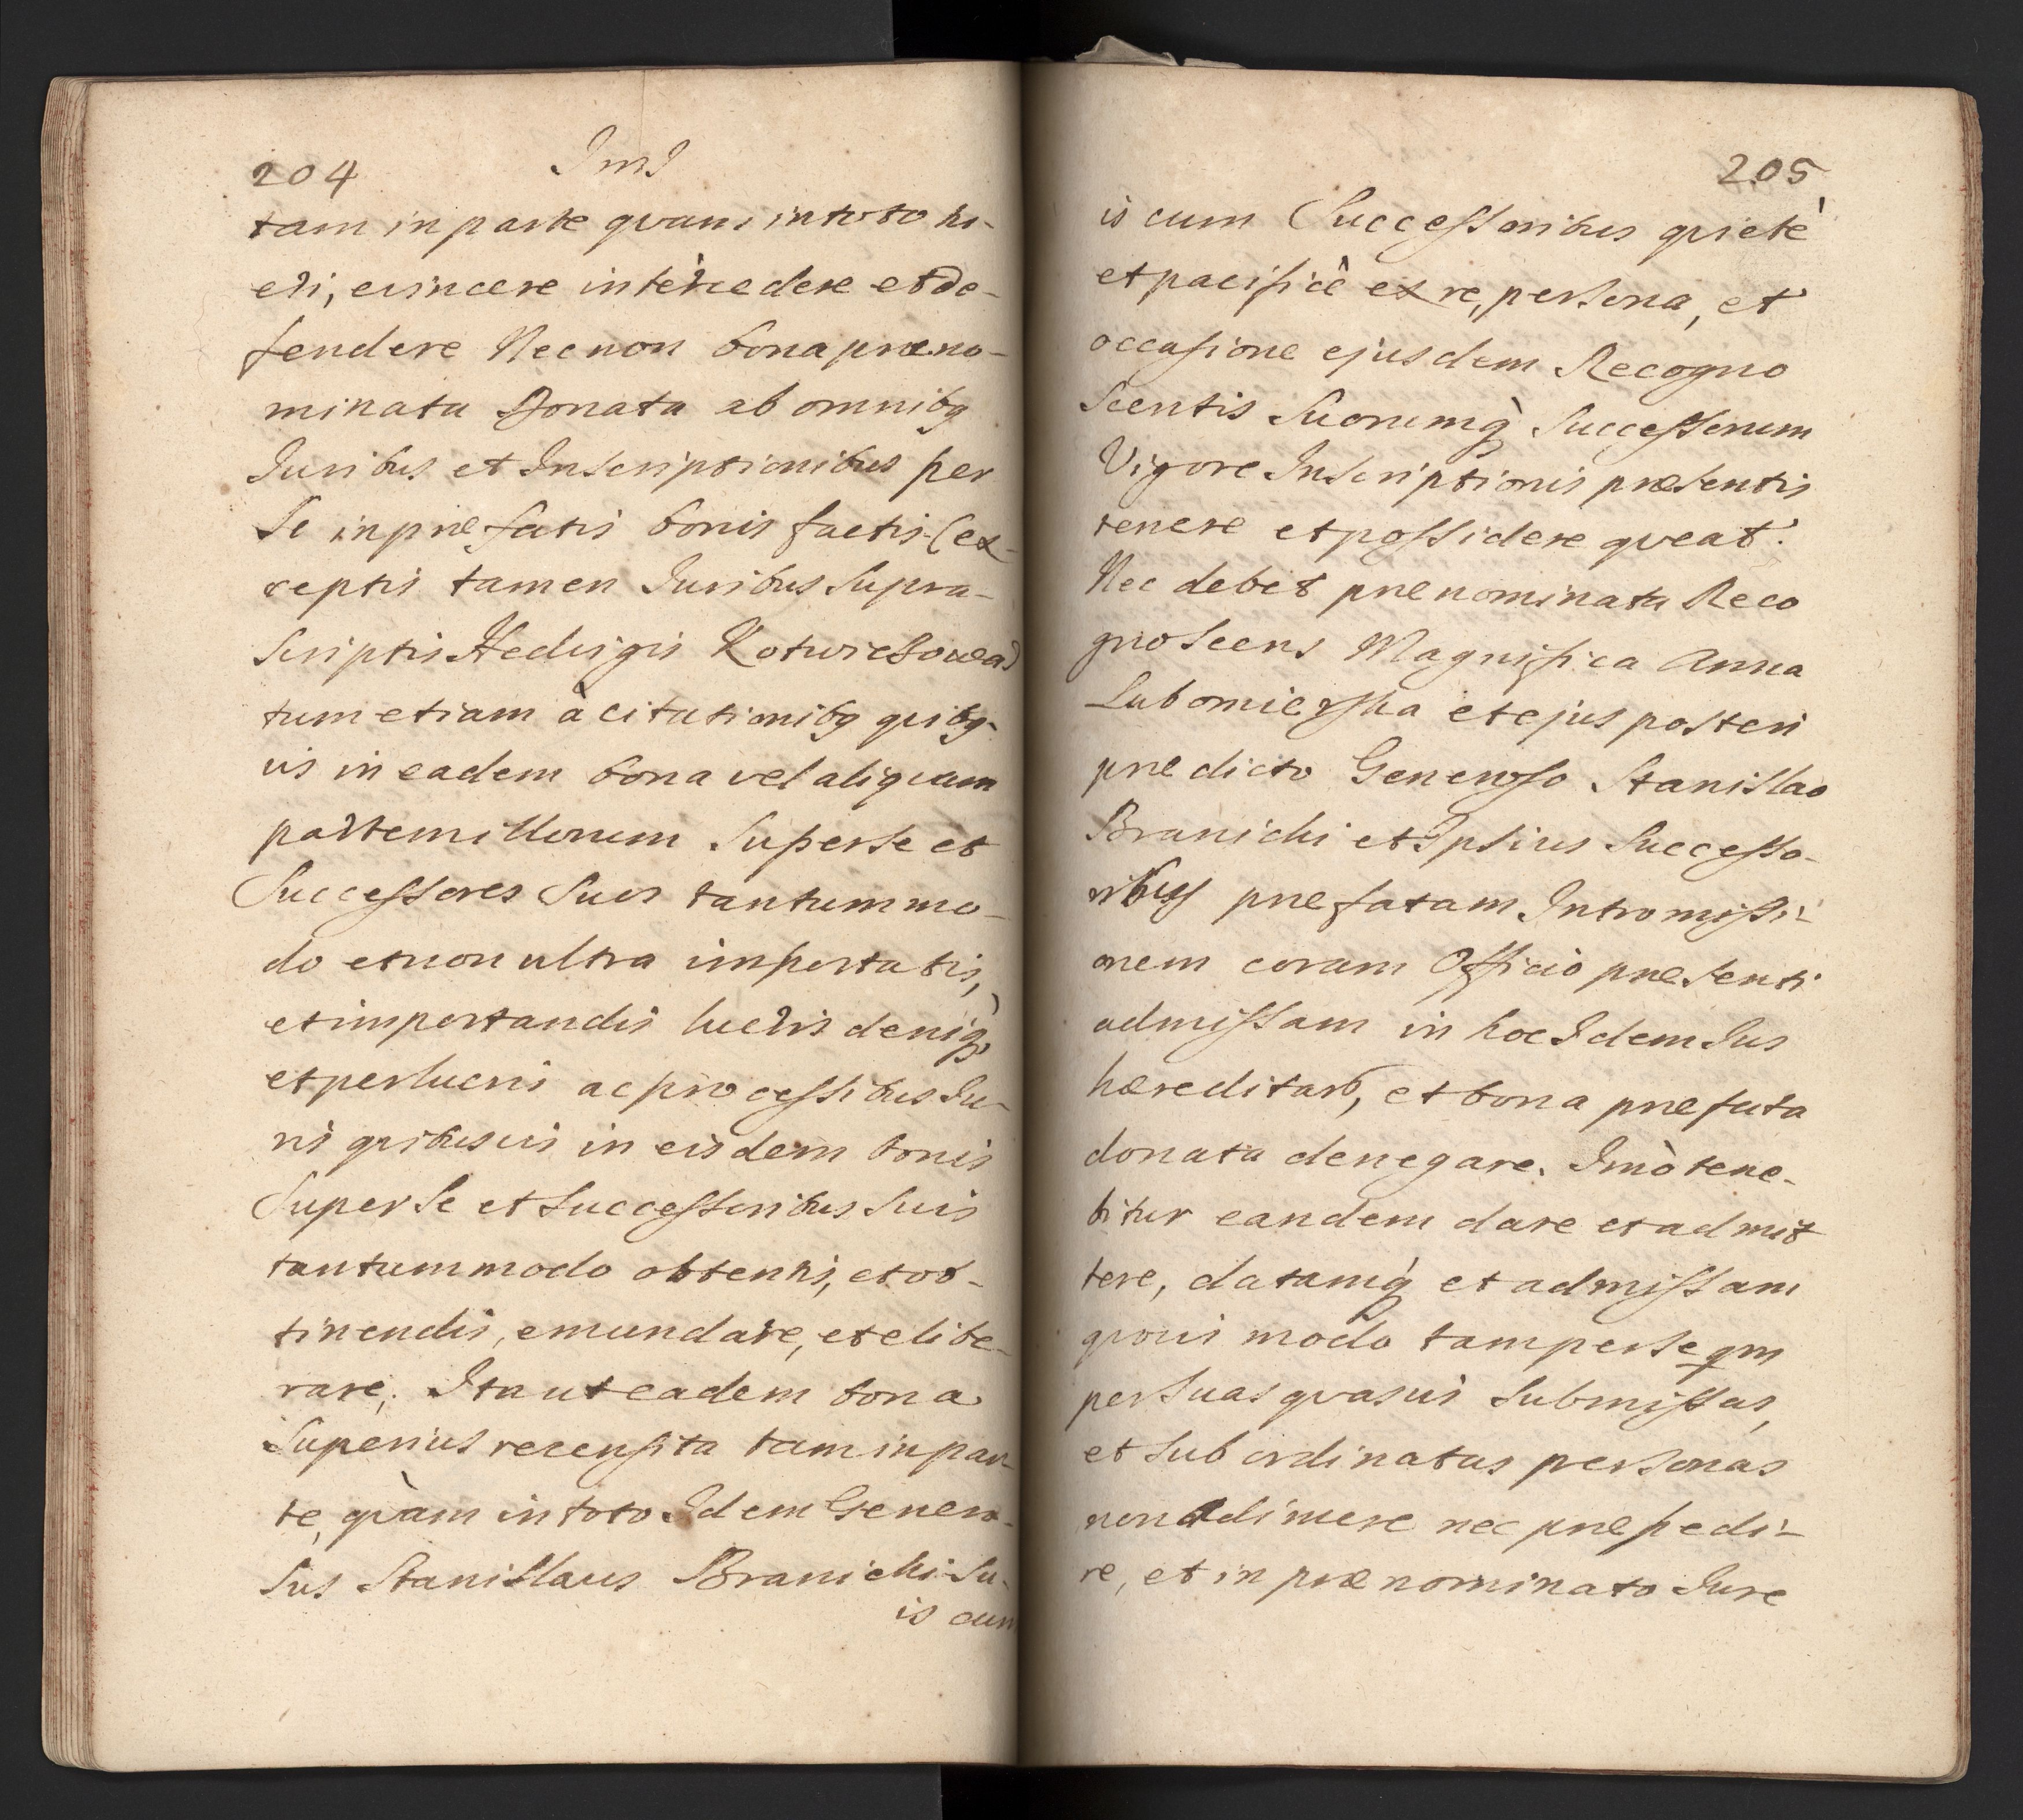 204
tam in parte quam in toto tu-
eri, evincere intercedere et de-
fendere Nec non bona præno-
minata Donata ab omnibq
Juribus et Inscriptionibus per
Se in præfatis bonis factis (ex-
ceptis tamen Juribus Supra-
Scriptis Hedvigis
tum etiam à citationibq quibq-
vis in eadem bona vel aliquam
partem illorum Super Se et
Successores Suos tantummo-
do et non ultra importatis,
et importandis lucris deniq
et perlucris ac processibus Ju-
ris quibusvis in eisdem bonis
Super Se et Successoribus Suis
tantummodo obtentis, et ob-
tinendis, emundare, et elibe-
rare, Ita ut eadem bona
Superius recensita tam in par-
te, quàm in toto Idem Genero-
Sus Stanislaus Branicki Su-
is cum
205
is cum Successoribus quietè
et pacificè ex re, persona, et
occasione ejusdem Recogno
Scentis Suorumq Successorum
Vigore Inscriptionis præsentis
tenere et possidere queat.
Nec debet prænominata Reco
gnoscens Magnifica Anna
Lubomierska et ejus posteri
prædicto Generoso Stanislao
Branicki et Ipsius Successo-
ribus præfatam Intromissi-
onem coram Officio præsenti
admissam in hoc Idem Jus
hæreditar, et bona præfata
donata denegare. Imò tene-
bitur eandem dare et admit
tere, datamq et admissam
quovis modo tam per se qm
per Suas quasvis Submissas,
et Subordinatas personas
non adimere nec præpedi-
re, et in prænominato Jure